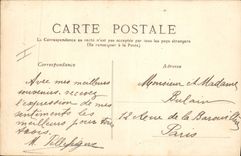 CARTE POSTALE
La Correspondance au recto n'est pas acceptée par tous les pays étrangers
(Se renseigner à la Poste)
Correspondance
Adresse
Avec mes meilleurs
souvenirs, recevez
l'expression de mes
sentiments les
meilleurs pour tous
trois.
M.
Monsieur et Madame
12 Rue de la
Paris